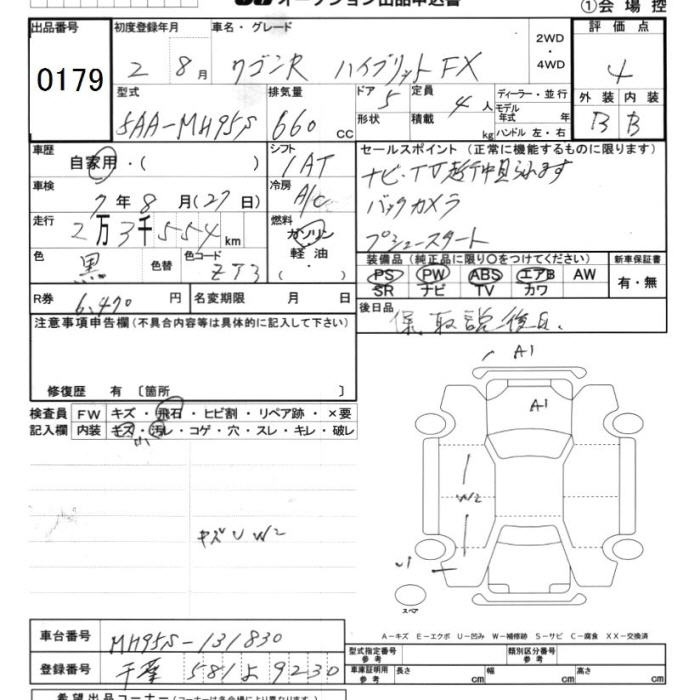 オークション出品申込書
①会場控
出品番号 初度登録年月 車名・グレード 評価点
0179
2 8月 ワゴンR ハイブリット FX 2WD・4WD 4
型式 排気量 ドア 5 定員 4人 ディーラー・並行 外装 内装
5AA-MH95S 660 cc 形状 積載 kg モデル年式 年 ハンドル 左・右 B B
車歴 シフト セールスポイント (正常に機能するものに限ります)
自家用・( ) IAT ナビ・TV走行中見られます
車検 冷房 バックカメラ
7年8月(27日) A/C プシュースタート
走行 2万3千554km 燃料 ガソリン 軽油 ・( )
色 黒 色替 色コード ZJ3
装備品 (純正品に限り○をつけてください) 新車保証書
PS PW ABS エアB AW 有・無
SR ナビ TV カワ
R券 6,470円 名変期限 月 日
後日品 保、取説後日.
注意事項申告欄 (不具合内容等は具体的に記入して下さい)
修復歴 有 〔箇所 〕
検査員 FW キズ・飛石・ヒビ割・リペア跡・×要
記入欄 内装 キズ・汚レ・コゲ・穴・スレ・キレ・破レ
小
キズU W2
A1
A1
W2
U1
スペア
A-キズ E-エクボ U-凹み W-補修跡 S-サビ C-腐食 XX-交換済
車台番号 MH95S-131830
登録番号 千葉 581 よ 9230
型式指定番号 参考 類別区分番号 参考
車庫証明用 参考 長さ cm 幅 cm 高さ cm
希望出品コーナー